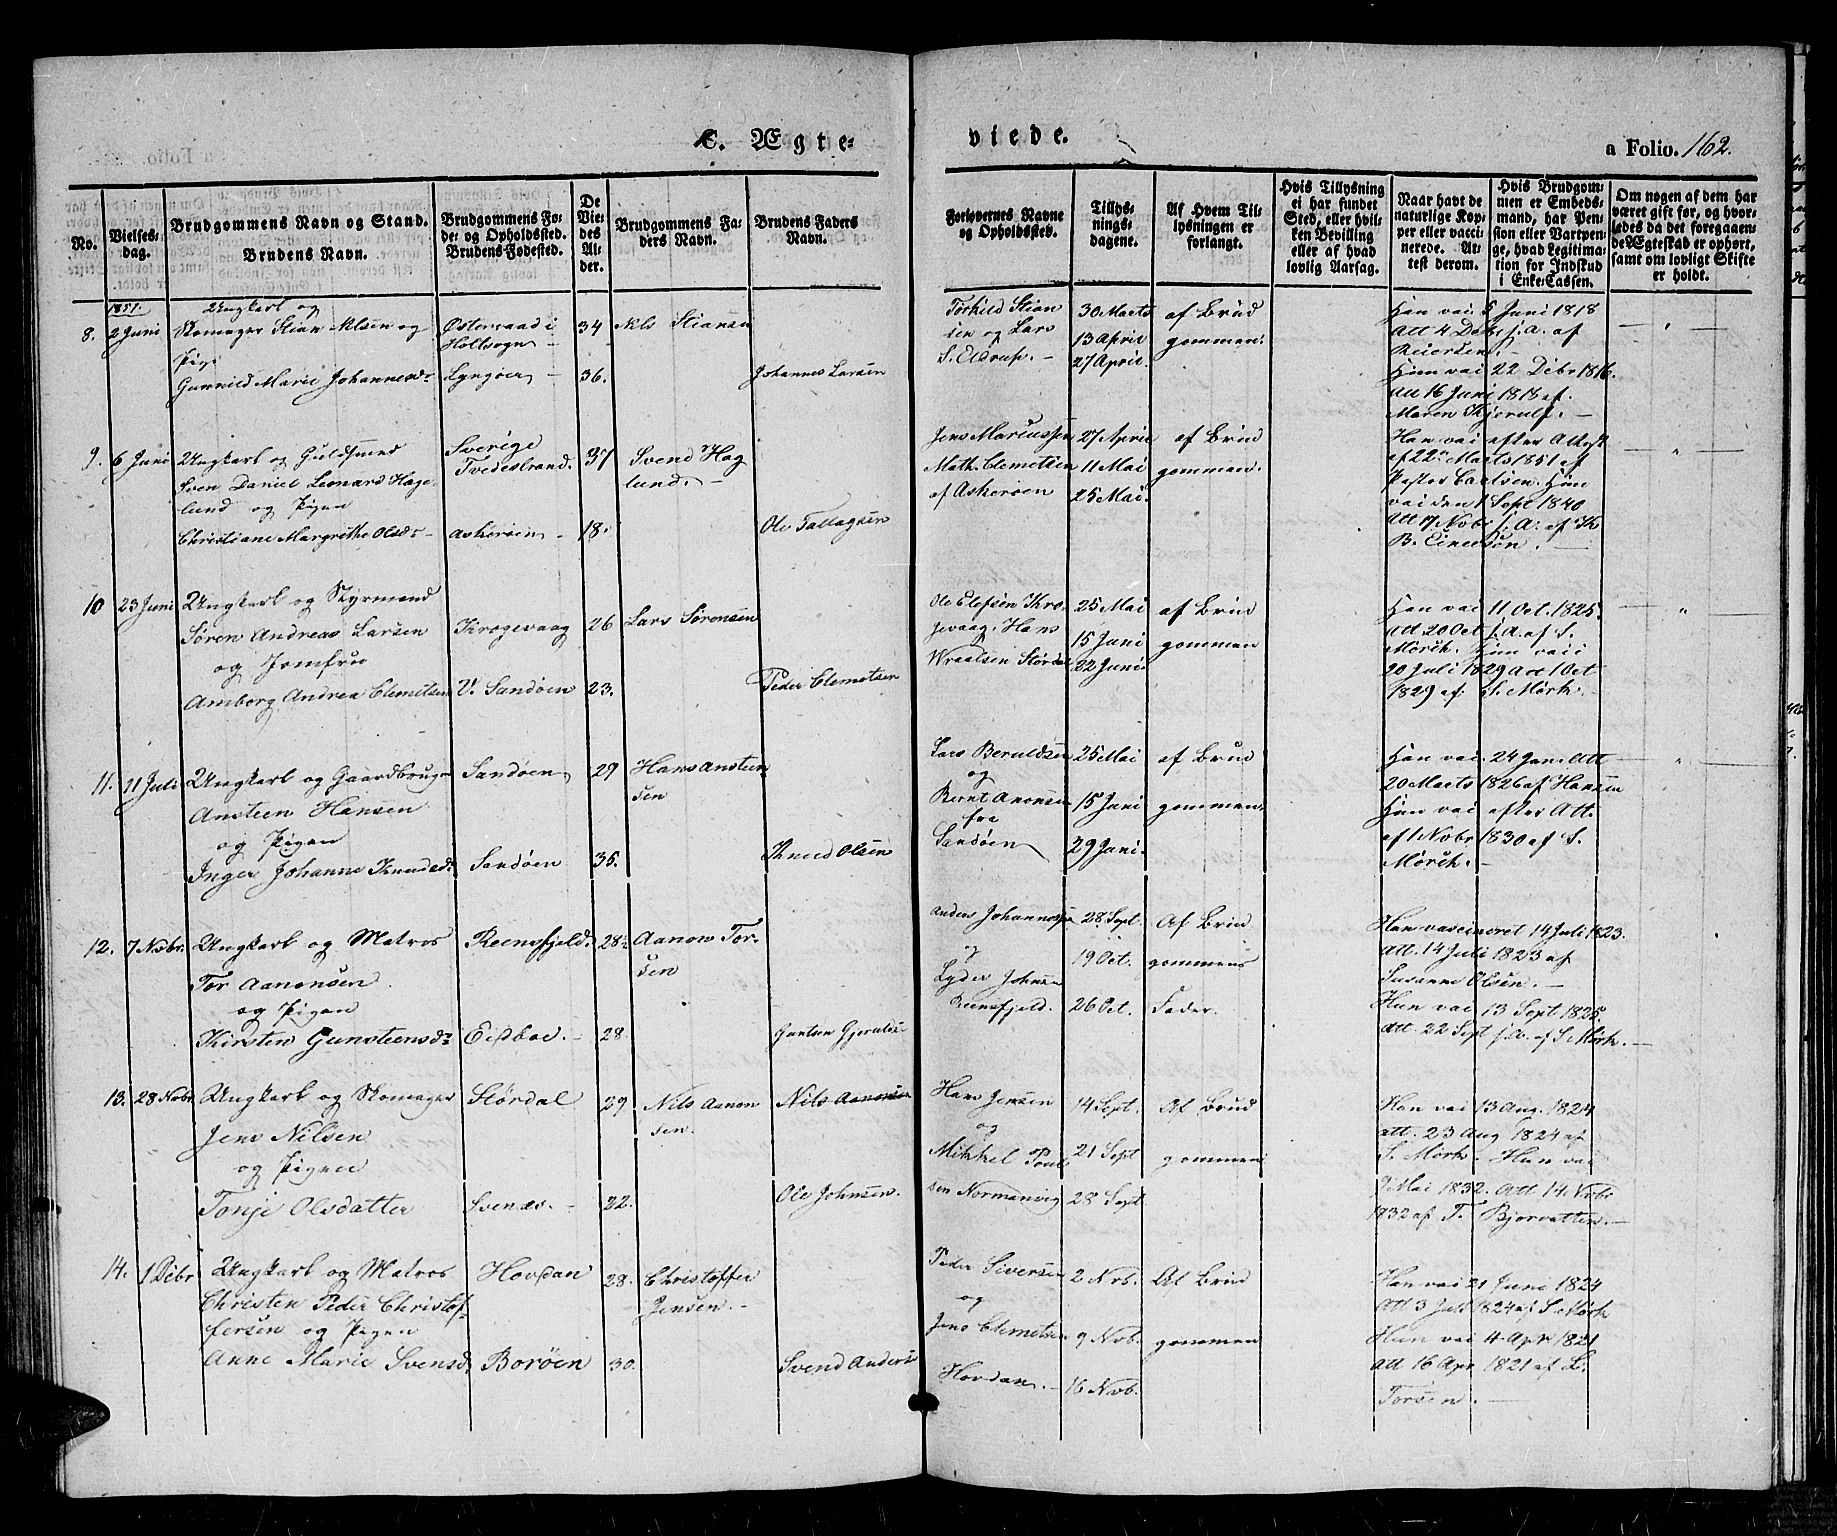 C. Ægte-
viede.
a Folio. 162.
No.
Vielses-
dag.
Brudgommens Navn og Stand.
Brudens Navn.
Brudgommens Fø-
de- og Opholdssted.
Brudens Fødested.
De
Vie-
des
Al-
der.
Brudgommens Fa-
ders Navn.
Brudens Faders
Navn.
Forlovernes Navne
og Opholdssted.
Tillys-
nings-
dagene.
Af Hvem Til-
lysningen er
forlangt.
Hvis Tillysning
ei har fundet
Sted, eller hvil-
ken Bevilling
eller af hvad
lovlig Aarsag.
Naar havt de
naturlige Kop-
per eller vacci-
nerede. At-
test derom.
Hvis Brudgom-
men er Embeds-
mand, har Pen-
sion eller Vartpen-
ge, hvad Legitima-
tion for Indskud
i Enke-Cassen.
Om nogen af dem har
været gift før, og hvor-
ledes da det foregaaen-
de Ægteskab er ophørt,
samt om lovligt Skifte
er holdt.
1851.
8. 2 Juni
Ungkarl og
Skomager Stian Nlsen og
Pige
Gunnild Marie Johannesd:
Østeraad i
Holtsogn
Lyngøer
34
36.
Nls Stiansen
Johannes Larsen
Torkild Stian
sen og Lars
S. Eldrup.
30 Marts
13 April
27 April
af Brud
gommen.
Han vac 5 Juni 1818
Att 4 Debr s. A. af
Reiersen.
Hun vac 22 Debr 1816.
Att 16 Juni 1818 af
Maren Kjerulf.
9. 6 Juni
Ungkarl og Guldsmed
Sven Daniel Leonard Hage
lund og Pigen
Christiane Margrethe Olsd:
Sverige
Tvedestrand.
Askerøen
37
18.
Svend Hag
lund.
Ole Tallagsen
Jens Mariussen
Math. Clemetsen
af Askerøen
27 April
11 Mai
25 Mai.
af Brud
gommen.
Han vac efter Attest
af 22 Marts 1851 af
Pastor Carlsen. Hun
vac den 1 Sept 1840
Att 17 Nobr s. A. af K
B. Einersen.
10 23 Juni
Ungkarl og Styrmand
Søren Andreas Larsen
og Jomfru
Amborg Andrea Clemetsen
Krogevaag
V. Sandøen
26
23.
Lars Sørensen
Peder Clemetsen
Ole Elefsen Kro
gevaag, Hans
Wraalsen Størdal
25 Mai
15 Juni
22 Juni.
af Brud
gommen
Han vac 11 Oct. 1825.
Att 20 Oct s. A. af S.
Mørch. Hun vac
20 Juli 1829 Att 1 Oct
1829 af S. Mørk.
11. 11 Juli
Ungkarl og Gaardbruger
Ansteen Hansen
og Pigen
Inger Johanne Knudsd:
Sandøen
Sandøen
29
35.
Hans Ansteen
sen
Knud Olsen
Lars Beruldsen
og
Bernt Anonsen
fra
Sandøen
25 Mai
15 Juni
29 Juni.
af Brud
gommen.
Han vac 24 Jan. Att
20 Marts 1826 af Hansen
Hun vac efter Att.
af 1 Nobr 1830 af S.
Mørch.
12. 7 Nobr.
Ungkarl og Matros
Tor Aanonsen
og Pigen
Kirsten Gunsteensd:
Reensfjeld.
Eidboe.
28
28.
Aanon Tor-
sen
Gunsten Gjeruldsen
Anders Johannessen
og
Lyder Johnsen
Reensfjeld.
28 Sept.
19 Oct.
26 Oct.
Af Brud
gommens
Fader.
Han vaccineret 14 Juli 1823.
Att. 14 Juli 1823 af
Susanne Olsen.
Hun vac 13 Sept 1825.
Att 22 Sept s. A. af S Mørk.
13. 28 Nobr
Ungkarl og Skomager
Jens Nilsen
og Pigen
Tonje Olsdatter
Størdal
Svenes.
29
22.
Nils Aanon
sen.
Nils Aanonsen
Ole Johnsen.
Hans Jensen
og
Mikkel Poul
sen Normanvig
14 Sept.
21 Sept
28 Sept.
Af Brud
gommen
Han vac 13 Aug. 1824
Att. 23 Aug 1824 af
S. Mørk. Hun vac
9 Mai 1832. Att 14 Nobr
1832 af T. Bjorvatten.
14. 1 Debr
Ungkarl og Matros
Christen Peder Christof-
fersen og Pigen
Anne Marie Svensd.
Hovdan
Borøen
28.
30.
Christoffer
Jensen.
Svend Anders
Peder Siversen
og
Jens Clemetsen
Hovdan.
2 Nob.
9 Nob.
16 Nob.
Af Brud
gommen
Han vac 21 Juni 1824
Att 3 Juli 1824 af S. Mørk
Hun vac 4 Apr 1821
Att 16 Apr 1821 af L.
Torsen.